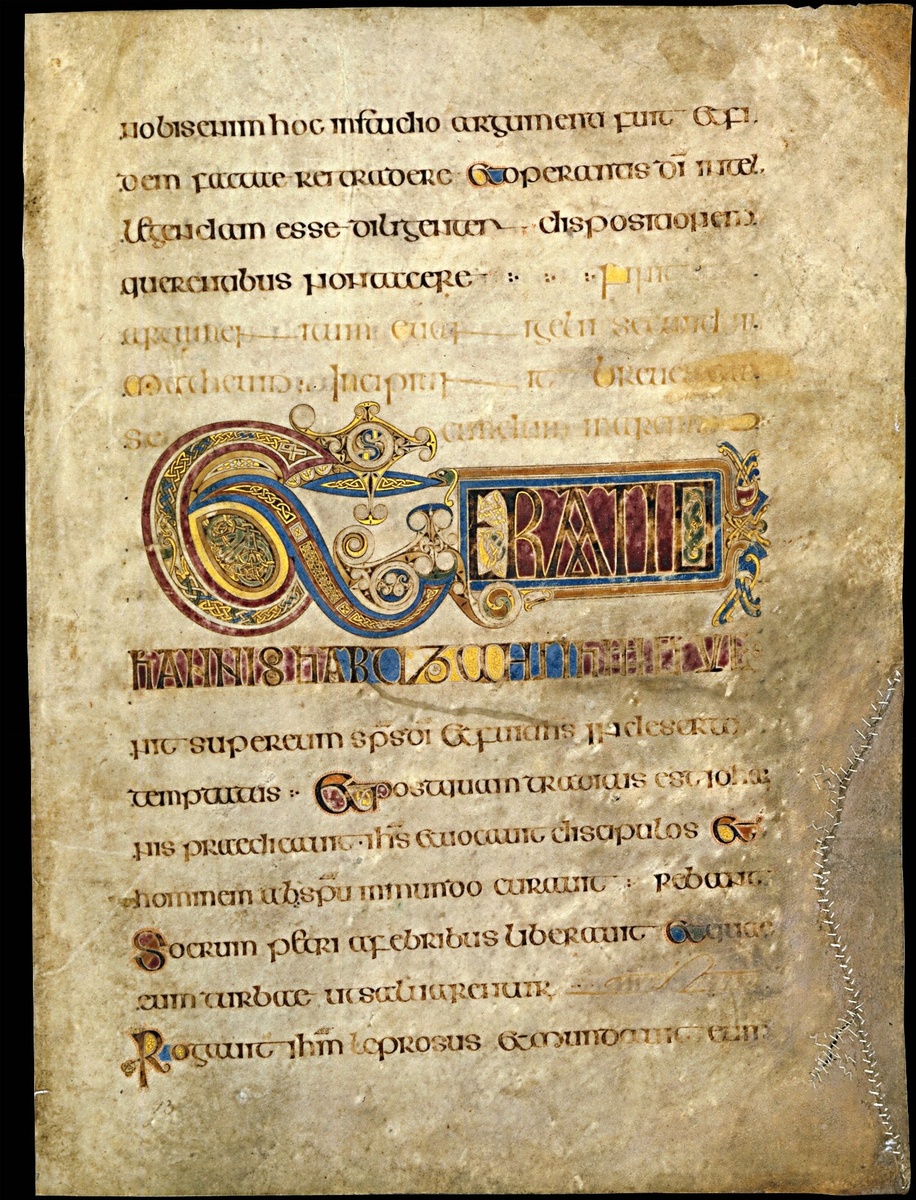 nobis enim hoc in studio argumenti fuit & fi
dem factae rei tradere Et operantis dī intel
legendam esse diligenter dispositionem
querentibus non tacere : Finit
argumentum euangelii secundum
mattheum : Incipiunt breues
secundum marcum
ET ERAT IO
HANNIS BABTIZANS
nit super eum sp̄s dī & in deserto
temptatus : Et postquam traditus est ioha
nis praedicauit ihs̄ euocauit discipulos Et
hominem ab spū inmundo curauit :
Socrum petri a febribus liberauit Et quae
eum turbae ut saluarentur
Rogauit ihm̄ leprosus & mundauit eum